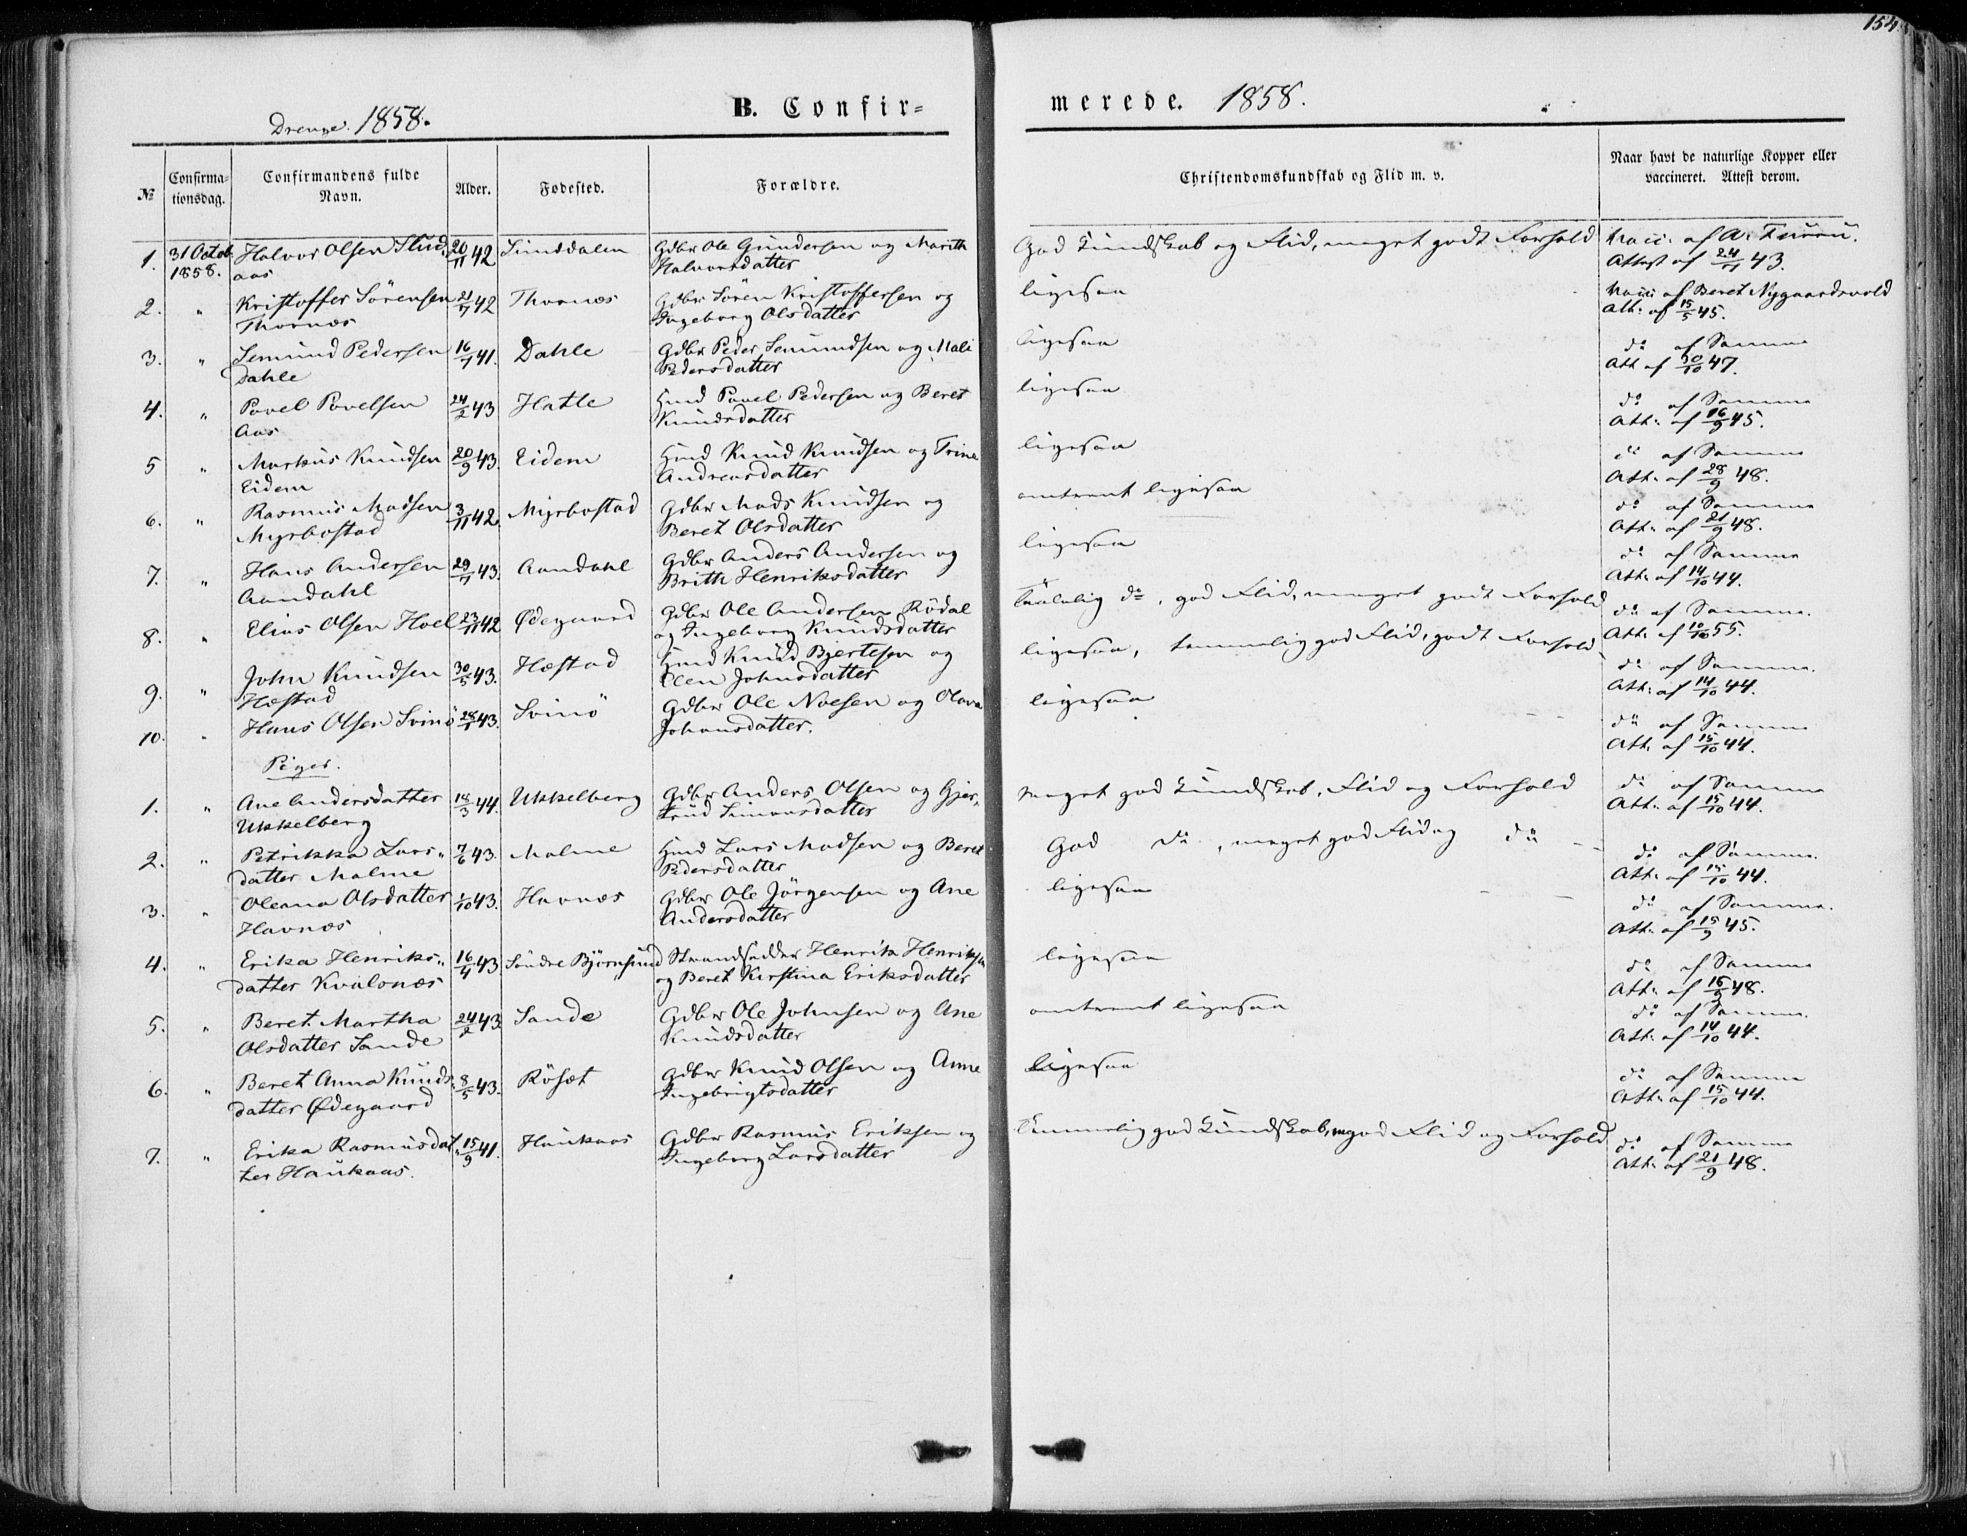 154
B. Confir=
merede. 1858.
Drenge. 1858.
№
Confirma-
tionsdag.
Confirmandens fulde
Navn.
Alder.
Fødested.
Forældre.
Christendomskundskab og Flid m. v.
Naar havt de naturlige Kopper eller
vaccineret. Attest derom.
1. 31 Octob. Halvor Olsen 20/11 42 Sunddalen Gdbr Ole Gundersen og Marith God Kundskab og Flid, meget godt Forhold Vacc. af A.
1858. aas Halvorsdatter Attest af 24/11 43.
2. " Kristoffer Sörensen 21/7 42 Thornæs Gdbr Sören Kristoffersen og ligesaa Vacc. af Beret Nygaardsvold
Thornæs Ingeborg Olsdatter Att. af 15/5 45.
3. " Semund Pedersen 16/7 41. Dahle Gdbr Peder Semundsen og Mali ligesaa do af Samme
Dahle Pedersdatter Att. af 30/10 47.
4. " Povel Povelsen 24/2 43 Hatle Hmd Povel Pedersen og Beret ligesaa do af Samme
Aas Knudsdatter Att. af 16/9 45.
5 " Markus Knudsen 20/9 43. Eidem Hmd Knud Knudsen og Trine ligesaa do af Samme
Eidem Andreasdatter Att. af 28/9 48.
6. " Rasmus Madsen 3/11 42 Myrbostad Gdbr Mads Knudsen og omtrent ligesaa do af Samme
Myrbostad Beret Olsdatter Att. af 21/9 48.
7. " Hans Andersen 29/1 43. Aandahl Gdbr Anders Andersen og ligesaa do af Samme
Aandahl Brith Henriksdatter Att. af 14/10 44.
8. " Elias Olsen Hoel 23/11 42 Ødegaard Gdbr Ole Andersen Rödal Taalelig do, god Flid, meget godt Forhold do af Samme.
og Ingeborg Knudsdatter Att. af 10/10 55.
9. " John Knudsen 30/5 43. Hæstad Hmd Knud Bjertesen og ligesaa, temmelig god Flid, godt Forhold do af Samme.
Hæstad Elen Johnsdatter Att. af 14/10 44.
10. " Hans Olsen Svinö 28/1 43. Svinö Gdbr Ole Nilsen og Olava ligesaa do af Samme
Johansdatter. Att. af 15/10 44.
Piger.
1. " Ane Andersdatter 18/3 44. Ukkelberg Gdbr Anders Olsen og Gjer- Meget god Kundskab, Flid og Forhold do af Samme
Ukkelberg trud Simonsdatter Att. af 15/10 44.
2. " Petrikka Lars- 7/6 43. Malme Hmd Lars Madsen og Beret God do, meget god Flid og do do af Samme.
datter Malme Pedersdatter Att. af 15/10 44.
3. " Oleana Olsdatter 1/10 43. Havnæs Gdbr Ole Jörgensen og Ane ligesaa do af Samme.
Havnæs Andersdatter Att. af 15/9 45.
4. " Erika Henriks- 16/4 43 Söndre Björnsund Strandsidder Henrik Henriksen ligesaa do af Samme
datter Kvalsnæs og Beret Kirstina Eriksdatter Att. af 16/9 48.
5. " Beret Martha 24/2 43 Sande Gdbr Ole Johnsen og Ane omtrent ligesaa do af Samme.
Olsdatter Sande Knudsdatter Att. af 14/10 44.
6. " Beret Anna Knuds- 8/5 43. Rösæt Gdbr Knud Olsen og Anne ligesaa do af Samme
datter Ødegaard Ingebrigtsdatter Att. af 15/10 44.
7. " Erika Rasmusdat- 15/9 41. Haukaas Gdbr Rasmus Eriksen og Temmelig god Kundskab, god Flid og Forhold do af Samme
ter Haukaas. Ingeborg Larsdatter Att. af 21/9 48.